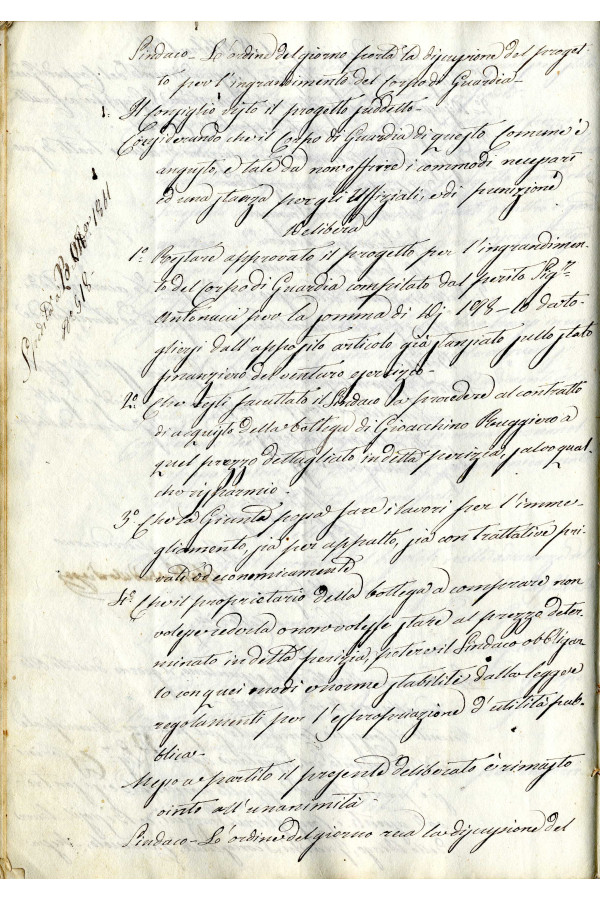 Sindaco - L'ordine del giorno porta la discussione del proget-
to per l'ingrandimento del Corpo di Guardia -
1. Il Consiglio visto il progetto suddetto -
Considerando che il Corpo di Guardia di questo Comune è
angusto, e tale da non offrire i commodi necessari
ed una stanza per gli Uffiziali, e di punizione
Delibera
1º Restare approvato il progetto per l'ingrandimen-
to del Corpo di Guardia compilato dal perito Sigr
Antonucci per la somma di 1098 - 10 da to-
gliersi dall'apposito articolo già stanziato sullo stato
finanziero del venturo esercizio -
2º Che resti facultato il Sindaco a procedere al contratto
di acquisto della bottega di Gioacchino Ruggiero a
quel prezzo dettagliato in detta perizia, salvo qual-
che risparmio -
3º Che la Giunta possa fare i lavori per l'imme-
gliamento, sia per appalto, sia con trattative pri-
vate od economicamente
4º Che il proprietario della bottega a comprare non
volesse vederla o non volesse stare al prezzo deter-
minato in detta perizia, potervi il Sindaco obbligar-
lo con quei modi e norme stabilite dalla legge e
regolamenti per l'espropriazione d'utilità pub-
blica -
Messo a partito il presente deliberato è rimasto
vinto all'unanimità -
Sindaco - L'ordine del giorno reca la discussione del